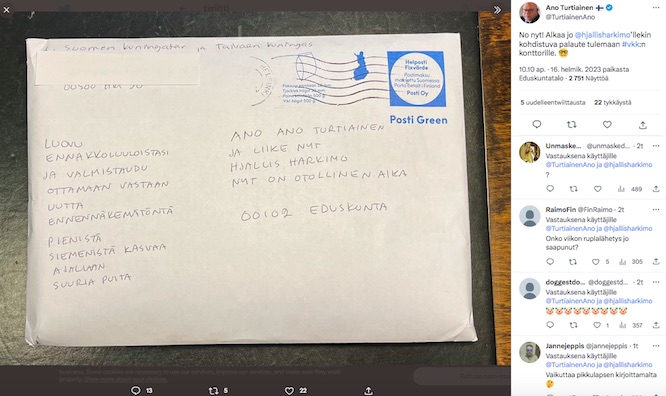 Suomen kuningatar ja Taivaan kuningas
LUOVU
ENNAKKOLUULOISTASI
JA VALMISTAUDU
OTTAMAAN VASTAAN
UUTTA
ENNENNÄKEMÄTÖNTÄ
PIENISTÄ
SIEMENISTÄ KASVAA
AJALLAAN
SUURIA PUITA
Helposti
Fixvärde
Posti Oy
Posti Green
ANO ANO TURTIAINEN
JA LIIKE NYT
HJALLIS HARKIMO
NYT ON OTOLLINEN AIKA
00102 EDUSKUNTA
13
5
22
Ano Turtiainen 🇫🇮
@TurtiainenAno
No nyt! Alkaa jo @hjallisharkimo'llekin
kohdistuva palaute tulemaan #vkk:n
konttorille. 🤓
10.10 ap. · 16. helmik. 2023 paikasta
Eduskuntatalo · 2 751 Näyttöä
5 uudelleentwiittausta 22 tykkäystä
Unmaske... @unmasked... · 2t
Vastauksena käyttäjille
@TurtiainenAno ja @hjallisharkimo
?
489
RaimoFin @FinRaimo · 2t
Vastauksena käyttäjille
@TurtiainenAno ja @hjallisharkimo
Onko viikon ruplalähetys jo
saapunut?
5 305
doggestdo... @doggestd... · 2t
Vastauksena käyttäjille
@TurtiainenAno ja @hjallisharkimo
🤡🤡🤡🤡🤡🤡🤡🤡🤡
1 357
Jannejeppis @jannejeppis · 1t
Vastauksena käyttäjille
@TurtiainenAno ja @hjallisharkimo
Vaikuttaa pikkulapsen kirjoittamalta
🤔